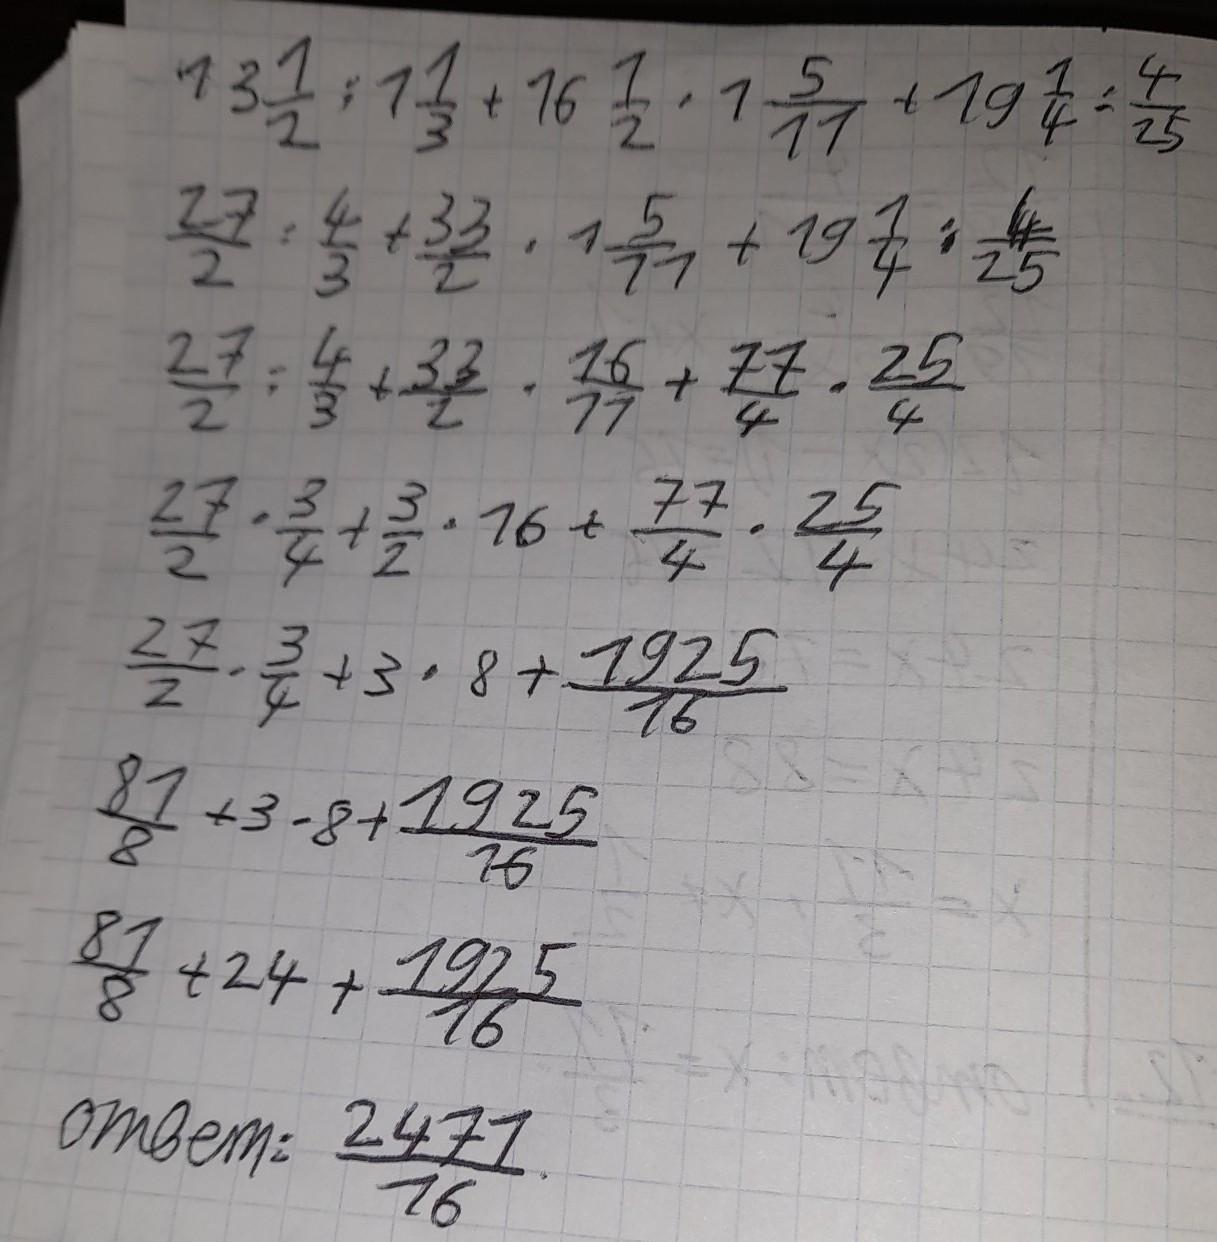 13 1/2 : 1 1/3 + 16 1/2 · 1 5/11 + 19 1/4 : 4/25
27/2 : 4/3 + 33/2 · 1 5/11 + 19 1/4 : 4/25
27/2 : 4/3 + 33/2 · 16/11 + 77/4 · 25/4
27/2 · 3/4 + 3/2 · 16 + 77/4 · 25/4
27/2 · 3/4 + 3 · 8 + 1925/16
81/8 + 3 · 8 + 1925/16
81/8 + 24 + 1925/16
ответ: 2471/16.